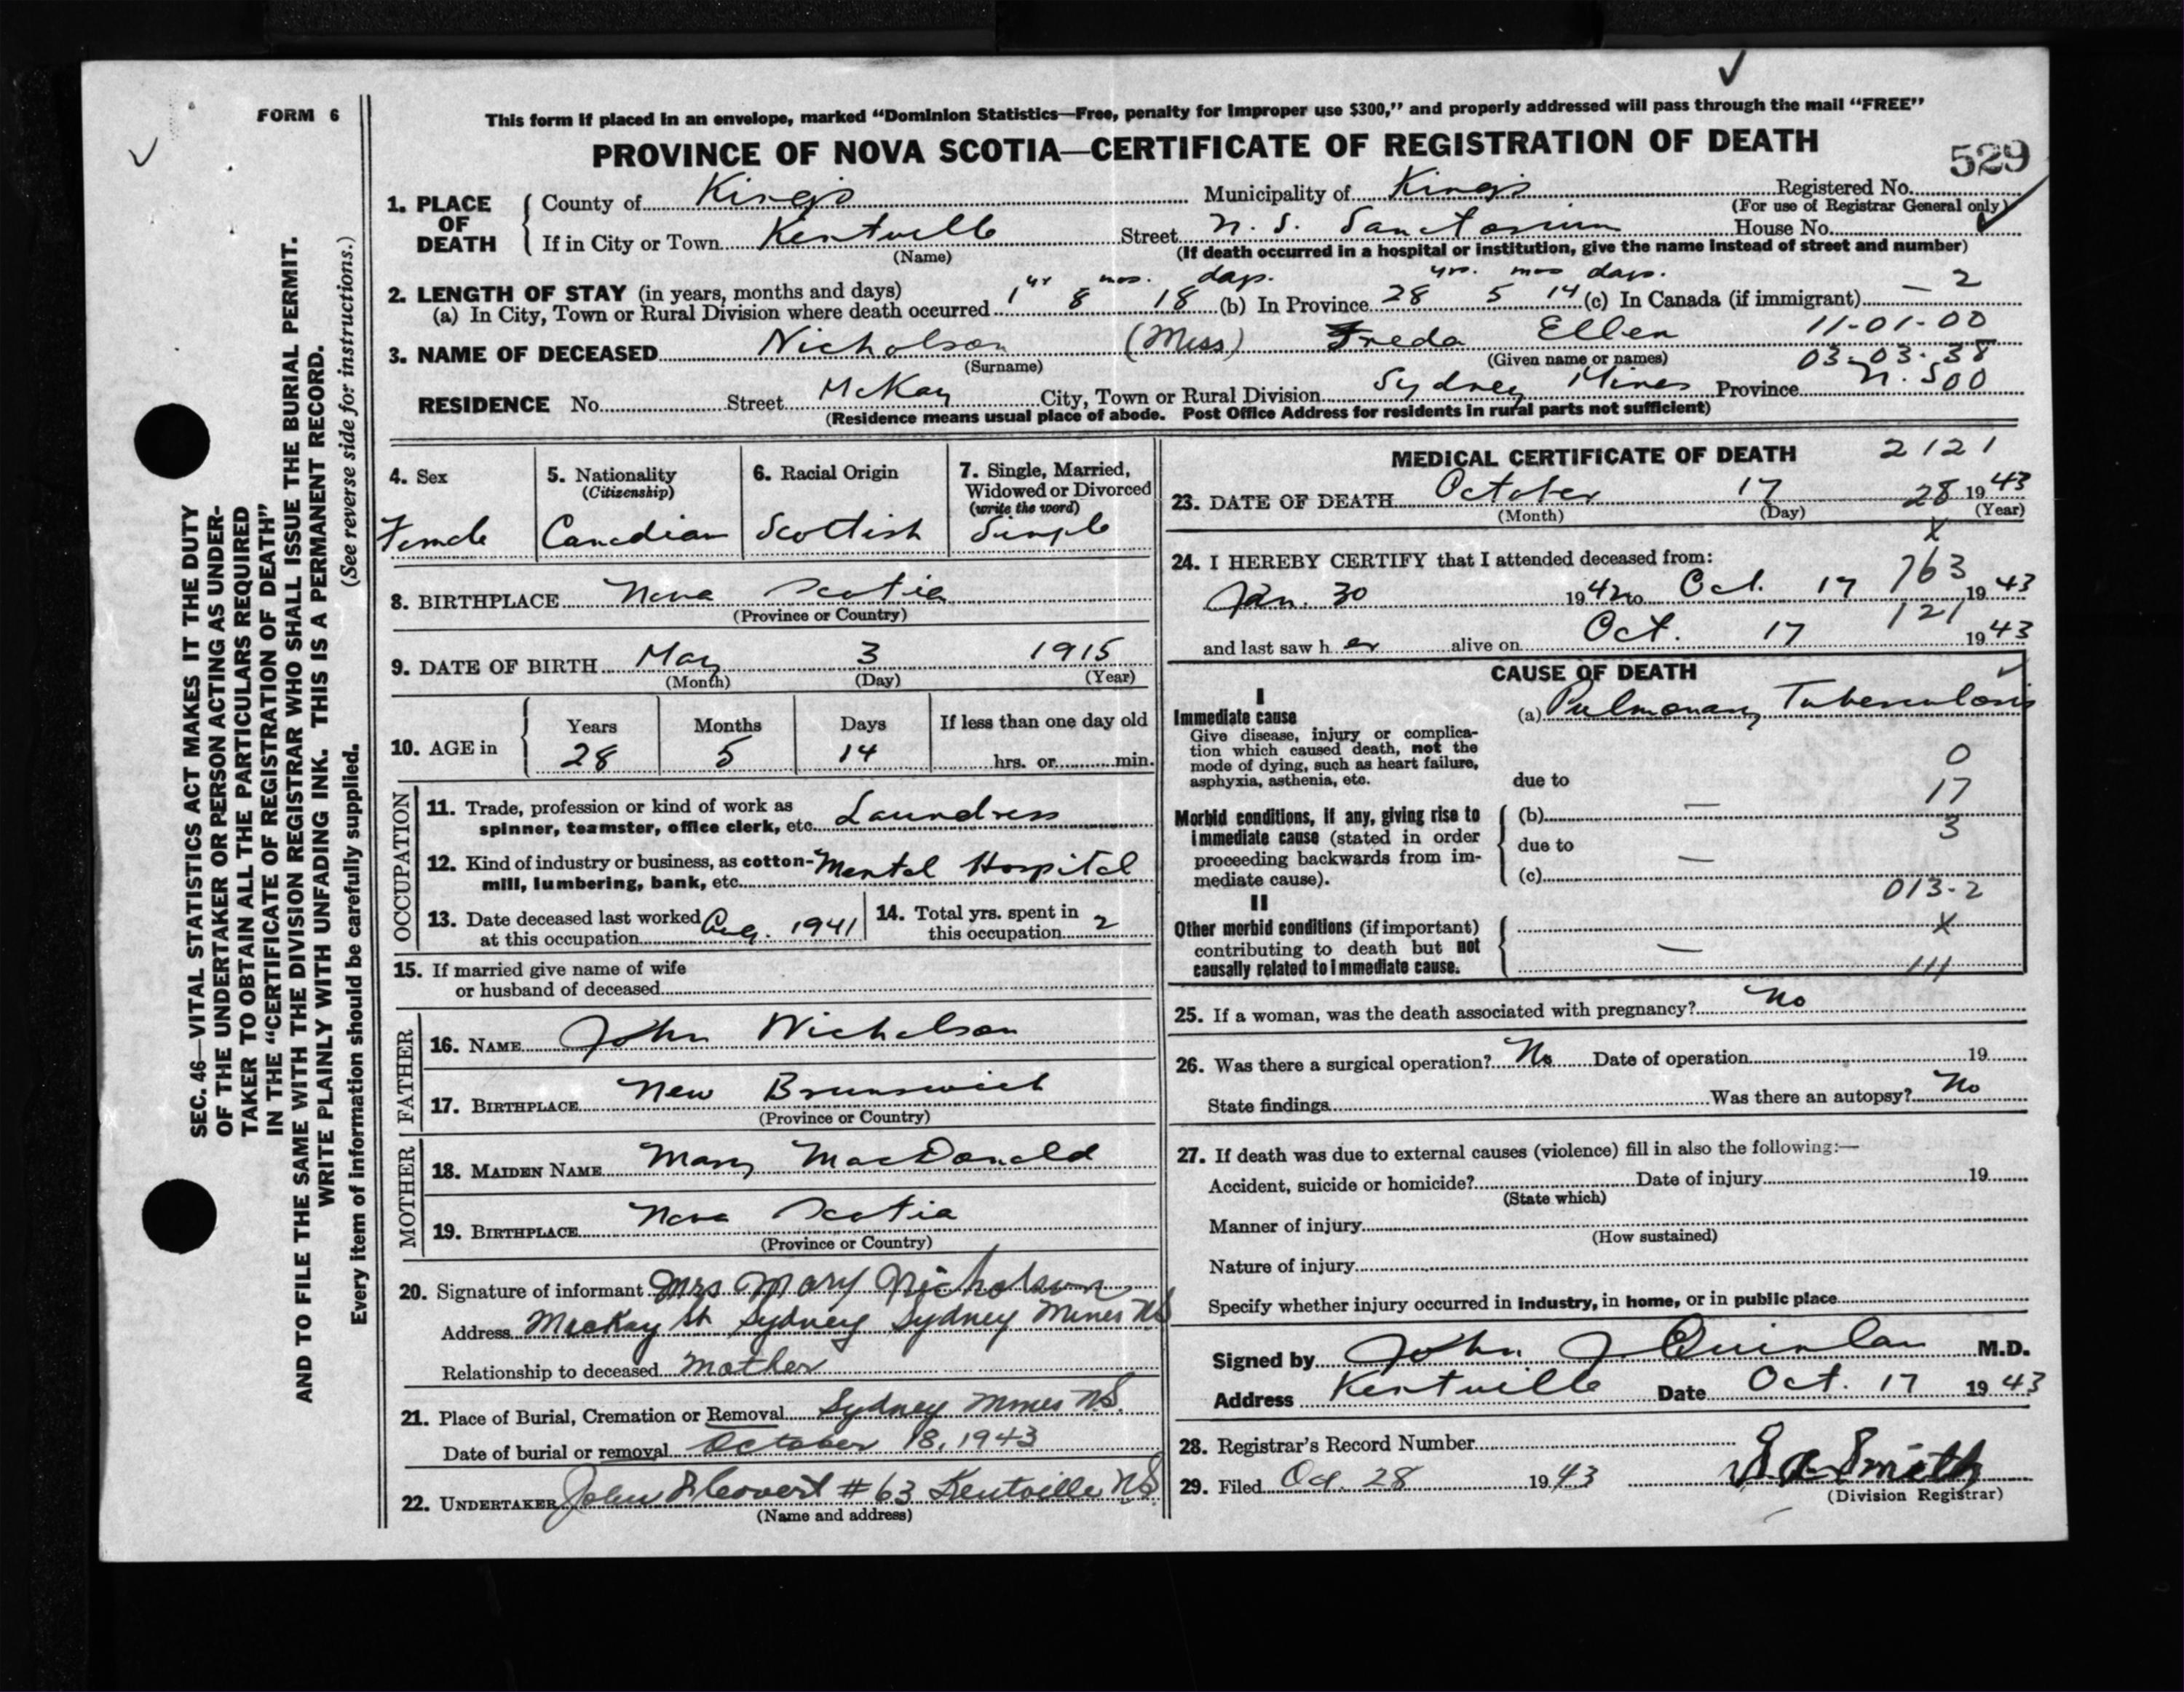 FORM 6
This form if placed in an envelope, marked "Dominion Statistics—Free, penalty for improper use $300," and properly addressed will pass through the mail "FREE"
PROVINCE OF NOVA SCOTIA—CERTIFICATE OF REGISTRATION OF DEATH
529
1. PLACE OF DEATH
County of Kings Municipality of Kings Registered No.
(For use of Registrar General only)
If in City or Town Kentville Street N. S. Sanctorium House No.
(Name) (If death occurred in a hospital or institution, give the name instead of street and number)
2. LENGTH OF STAY (in years, months and days)
(a) In City, Town or Rural Division where death occurred 1 yr 8 mos. 18 days. (b) In Province 28 yrs. 5 mos 14 days. (c) In Canada (if immigrant) — 2
11-01-00
3. NAME OF DECEASED Nicholson (Miss) Freda Ellen
(Surname) (Given name or names) 03-03-38
RESIDENCE No. Street McKay City, Town or Rural Division Sydney Mines Province N. S 00
(Residence means usual place of abode. Post Office Address for residents in rural parts not sufficient)
4. Sex
Female
5. Nationality
(Citizenship)
Canadian
6. Racial Origin
Scottish
7. Single, Married,
Widowed or Divorced
(write the word)
Single
8. BIRTHPLACE Nova Scotia
(Province or Country)
9. DATE OF BIRTH May 3 1915
(Month) (Day) (Year)
10. AGE in
Years Months Days If less than one day old
28 5 14 hrs. or min.
OCCUPATION
11. Trade, profession or kind of work as
spinner, teamster, office clerk, etc. Laundress
12. Kind of industry or business, as cotton-
mill, lumbering, bank, etc. Mental Hospital
13. Date deceased last worked
at this occupation Aug. 1941
14. Total yrs. spent in
this occupation 2
15. If married give name of wife
or husband of deceased
FATHER
16. NAME John Nicholson
17. BIRTHPLACE New Brunswick
(Province or Country)
MOTHER
18. MAIDEN NAME Mary MacDonald
19. BIRTHPLACE Nova Scotia
(Province or Country)
20. Signature of informant Mrs Mary Nicholson
Address MacKay St Sydney Sydney Mines NS
Relationship to deceased Mother
21. Place of Burial, Cremation or Removal Sydney Mines N.S.
Date of burial or removal October 18, 1943
22. UNDERTAKER John Covert # 63 Kentville NS
(Name and address)
MEDICAL CERTIFICATE OF DEATH 2121
23. DATE OF DEATH October 17 28 1943
(Month) (Day) (Year)
X
24. I HEREBY CERTIFY that I attended deceased from:
763
Jan. 30 1942 to Oct. 17 1943
121
and last saw her alive on Oct. 17 1943
CAUSE OF DEATH
I
Immediate cause
Give disease, injury or complica-
tion which caused death, not the
mode of dying, such as heart failure,
asphyxia, asthenia, etc.
(a) Pulmonary Tuberculosis
0
due to
17
Morbid conditions, if any, giving rise to
immediate cause (stated in order
proceeding backwards from im-
mediate cause).
(b) —
3
due to
(c) —
013-2
II
Other morbid conditions (if important)
contributing to death but not
causally related to immediate cause.
X
—
111
25. If a woman, was the death associated with pregnancy? No
26. Was there a surgical operation? No Date of operation 19
State findings Was there an autopsy? No
27. If death was due to external causes (violence) fill in also the following:—
Accident, suicide or homicide? Date of injury 19
(State which)
Manner of injury
(How sustained)
Nature of injury
Specify whether injury occurred in industry, in home, or in public place
Signed by John J Quinlan M.D.
Address Kentville Date Oct. 17 1943
28. Registrar's Record Number
29. Filed Oct. 28 1943 Smith
(Division Registrar)
SEC. 46—VITAL STATISTICS ACT MAKES IT THE DUTY
OF THE UNDERTAKER OR PERSON ACTING AS UNDER-
TAKER TO OBTAIN ALL THE PARTICULARS REQUIRED
IN THE "CERTIFICATE OF REGISTRATION OF DEATH"
AND TO FILE THE SAME WITH THE DIVISION REGISTRAR WHO SHALL ISSUE THE BURIAL PERMIT.
WRITE PLAINLY WITH UNFADING INK. THIS IS A PERMANENT RECORD.
(See reverse side for instructions.)
Every item of information should be carefully supplied.